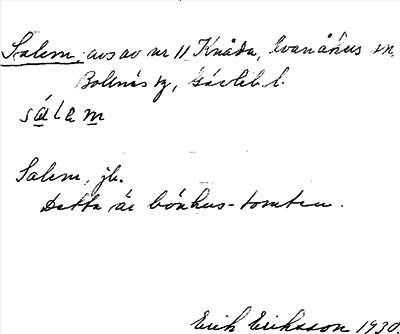 Salem, avs av nr 11 Knåda, Ovanåkers sn,
Bollnäs tg, Gävleb. l.
sálam
Salem, jb.
Detta är bönhus-tomten.
Erik Eriksson 1930.